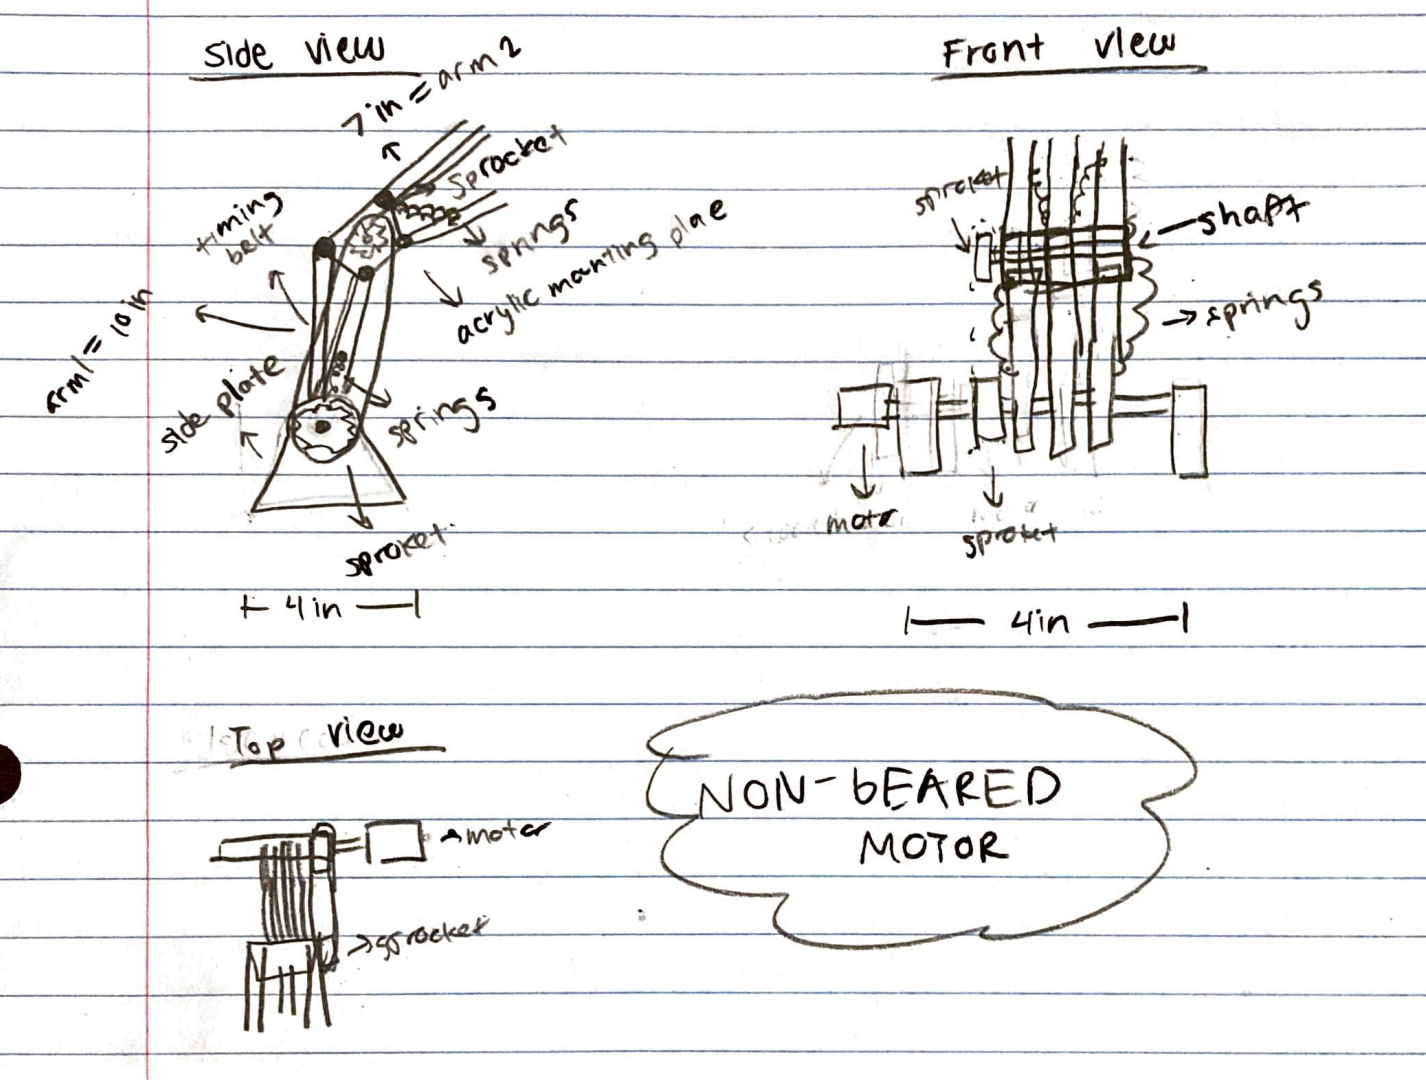 Side view
7 in = arm 2
sprocket
timing
belt
springs
acrylic mounting plae
arm1 = 10 in
side plate
springs
sproket
4 in
Front view
sproket
shaft
springs
motor
sproket
4in
Top view
motor
sprocket
NON-BEARED
MOTOR